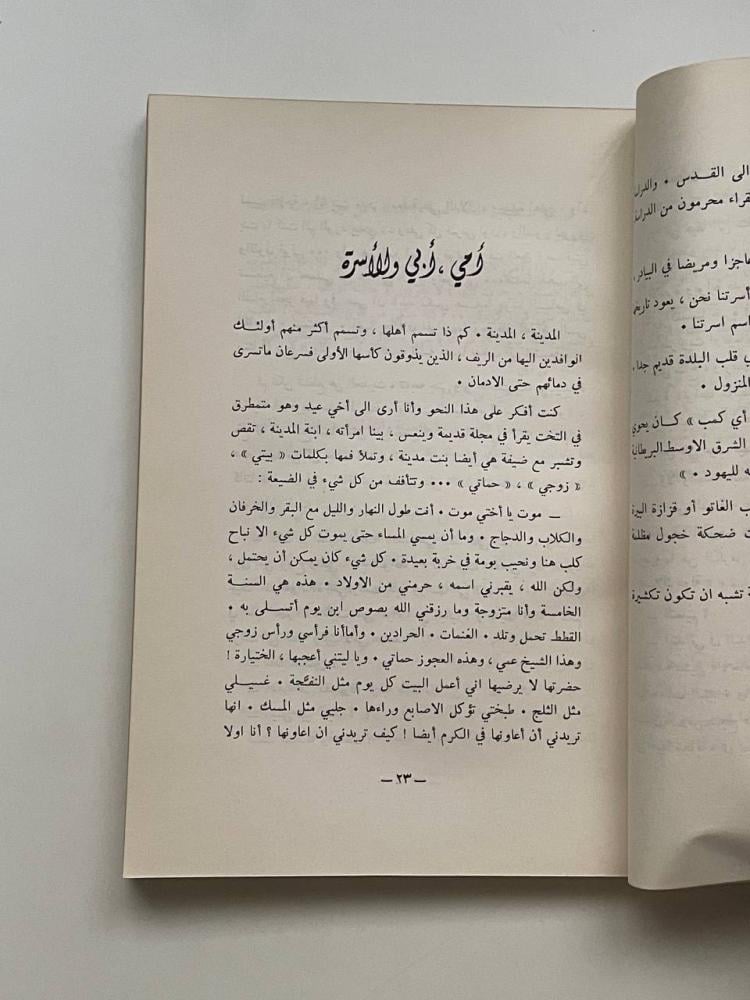 أمي ، أبي والأسرة
المدينة ، المدينة • كم ذا تسمم أهلها ، وتسمم أكثر منهم أولئك
الوافدين اليها من الريف ، الذين يذوقون كأسها الأولى فسرعان ماتسرى
في دمائهم حتى الادمان •
كنت أفكر على هذا النحو وأنا أرى الى أخي عيد وهو متمطرق
في التخت يقرأ في مجلة قديمة وينعس ، بينا امرأته ، ابنة المدينة ، تقص
وتشبر مع ضيفة هي أيضا بنت مدينة ، وتملأ فمها بكلمات « بيتي » ،
« زوجي » ، « حماتي » ••• وتتأفف من كل شيء في الضيعة :
ــ موت يا أختي موت • أنت طول النهار والليل مع البقر والخرفان
والكلاب والدجاج • وما أن يمسي المساء حتى يموت كل شيء الا نباح
كلب هنا ونحيب بومة في خربة بعيدة • كل شيء كان يمكن أن يحتمل ،
ولكن الله ، يقبرني اسمه ، حرمني من الاولاد • هذه هي السنة
الخامسة وأنا متزوجة وما رزقني الله بصوص ابن يوم أتسلى به •
القطط تحمل وتلد • الغنمات • الحرادين • وأماأنا فرأسي ورأس زوجي
وهذا الشيخ عمي ، وهذه العجوز حماتي • ويا ليتني أعجبها ، الختيارة !
حضرتها لا يرضيها اني أعمل البيت كل يوم مثل النفّجة • غسيلي
مثل الثلج • طبختي تؤكل الاصابع وراءها • جليي مثل المسك • انها
تريدني أن أعاونها في الكرم أيضا ! كيف تريدني ان اعاونها ؟ أنا اولا
ــ ٢٣ ــ
الى القدس • والدراس
قراء محرمون من الدراسة
عاجزا ومريضا في البيادر ،
أسرتنا نحن ، يعود تاريخ
اسم اسرتنا •
قلب البلدة قديم جدا ،
المنزول •
أي كمب » كان يحوي
الشرق الاوسط البريطانية
ه لليهود • »
ب الغاتو أو قزازة البيرة
ت ضحكة خجول مظلمة
ة تشبه ان تكون تكشيرة